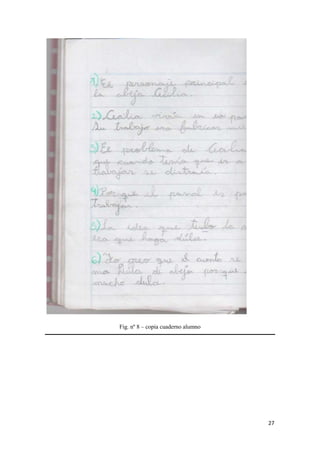 1) El personaje principal
la abeja Cecilia.
2) Cecilia vivía en
Su trabajo era fabricar
3) El problema de Cecilia
que cuando tenía que ir a
trabajar se distraía.
4) Porque el panal es
trabajar.
5) La idea que tubo la
que haga dulce.
6) Yo creo que el cuento se
de abeja porque
mucho dulce.
Fig. nº 8 – copia cuaderno alumno
27